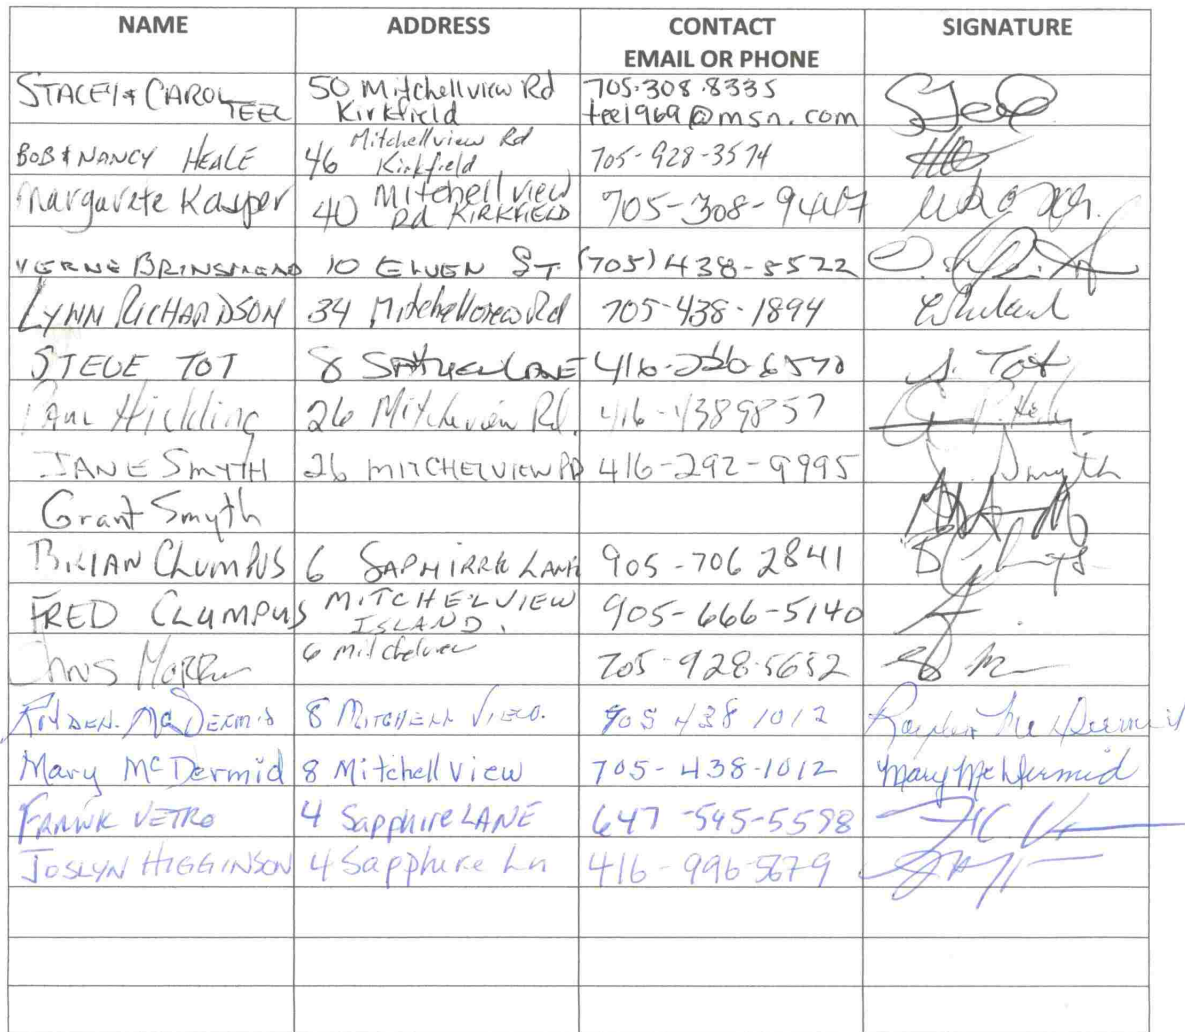 NAME ADDRESS CONTACT EMAIL OR PHONE SIGNATURE
STACEY & CAROL TEEL 50 Mitchellview Rd Kirkfield 705.308.8335 teel969@msn.com STeel
BOB & NANCY HEALE 46 Mitchellview Rd Kirkfield 705-928-3574
Margarete Kasper 40 Mitchell view Rd KIRKFIELD 705-308-9447
VERNE BRINSMEAD 10 ELVEN ST (705) 438-5522
LYNN RICHARDSON 34 Rd 705-438-1894
STEVE TOT 8 LANE 416-226-6570 S. Tot
Paul Hickling 26 Rd. 416-4389857
JANE SMYTH 26 MITCHELVIEW RD 416-292-9995 J Smyth
Grant Smyth
BRIAN CLUMPUS 6 LANE 905-706 2841
FRED CLUMPUS MITCHELVIEW ISLAND. 905-666-5140
6 705-928-5652
McDermid 8 MITCHELL VIEW. 705 438 1012 McDermid
Mary McDermid 8 Mitchell View 705-438-1012 Mary McDermid
FRANK VETRO 4 Sapphire LANE 647-545-5598
JOSLYN HIGGINSON 4 Sapphire Ln 416-996-5679